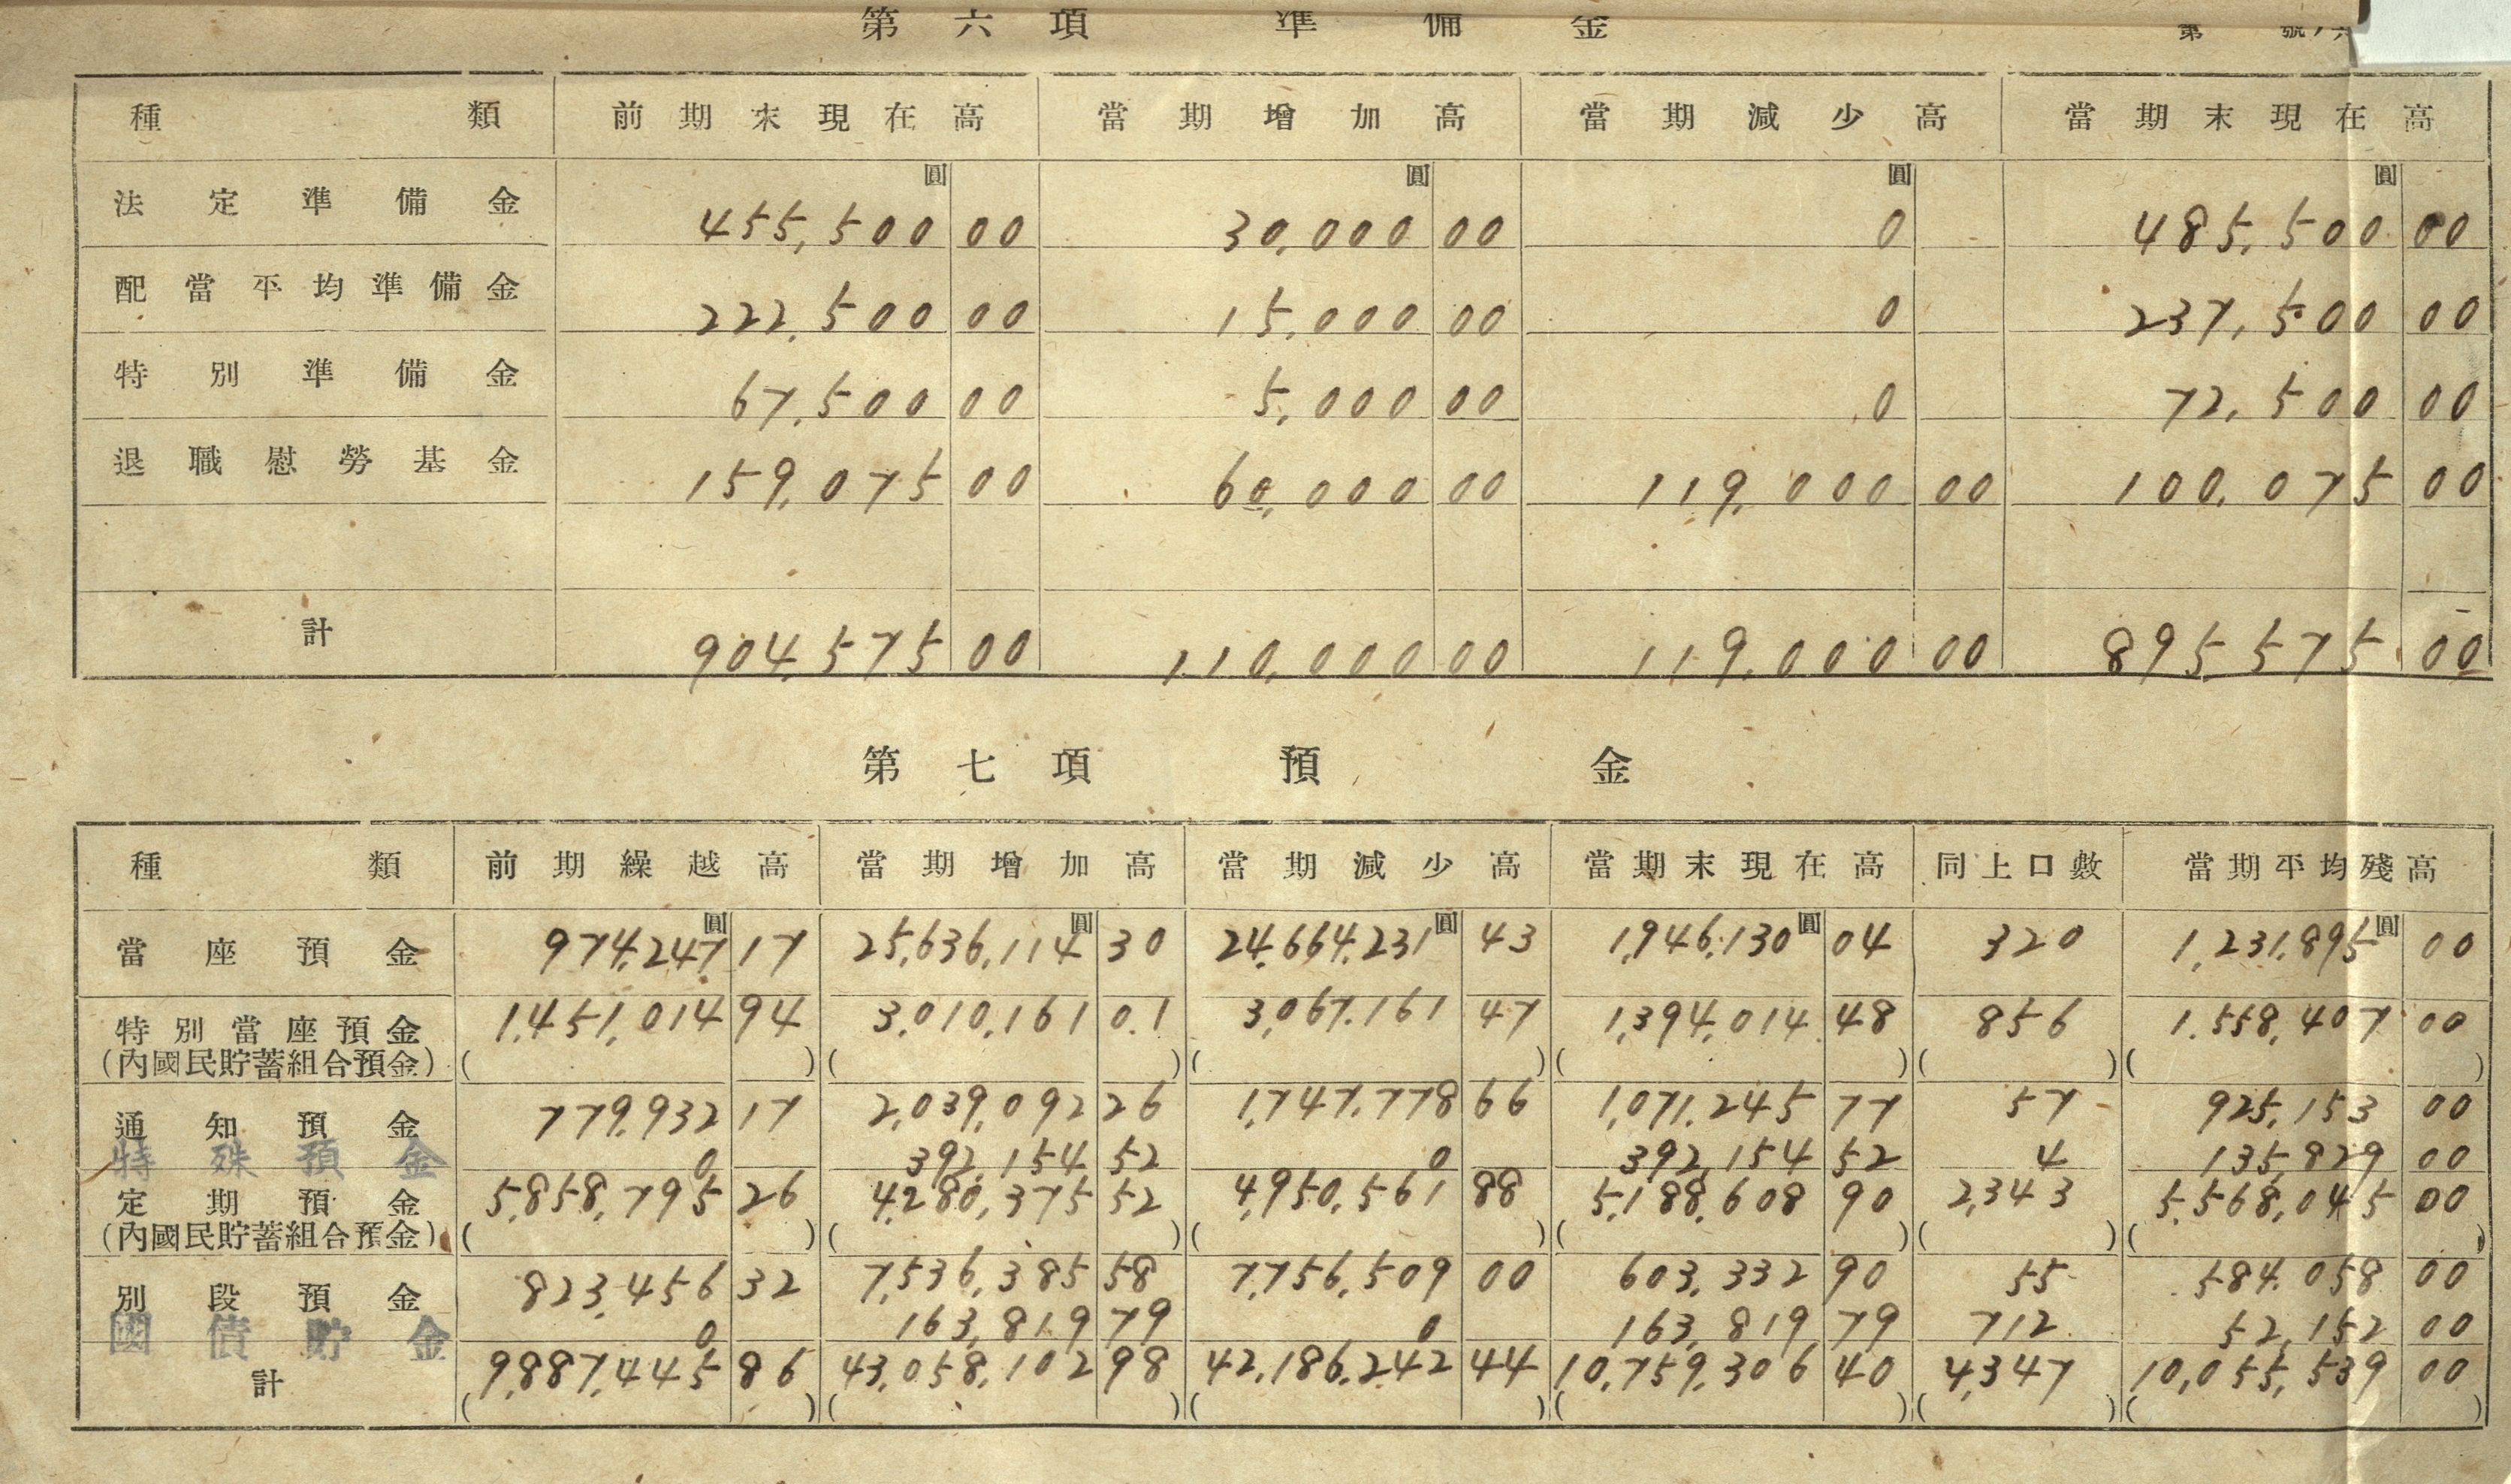 第六項 準備金
第 號ノ
種類 前期末現在高 當期增加高 當期減少高 當期末現在高
圓 圓 圓 圓
法定準備金 455,500 00 30,000 00 0 485,500 00
配當平均準備金 222,500 00 15,000 00 0 237,500 00
特別準備金 67,500 00 5,000 00 0 72,500 00
退職慰勞基金 159,075 00 60,000 00 119,000 00 100,075 00
計 904,575 00 110,000 00 119,000 00 895 575 00
第七項 預金
種類 前期繰越高 當期增加高 當期減少高 當期末現在高 同上口數 當期平均殘高
圓 圓 圓 圓 圓
當座預金 974,247 17 25,636,114 30 24,664,231 43 1,946,130 04 320 1,231,895 00
特別當座預金 1,451,014 94 3,010,161 01 3,067,161 47 1,394,014 48 856 1,558,407 00
(內國民貯蓄組合預金) ( ) ( ) ( ) ( ) ( ) ( )
通知預金 779,932 17 2,039,092 26 1,747,778 66 1,071,245 77 57 925,153 00
特殊預金 0 392,154 52 0 392,154 52 4 135,829 00
定期預金 5,858,795 26 4,280,375 52 4,950,561 88 5,188,608 90 2,343 5,568,045 00
(內國民貯蓄組合預金) ( ) ( ) ( ) ( ) ( ) ( )
別段預金 823,456 32 7,536,385 58 7,756,509 00 603,332 90 55 584,058 00
國債貯金 0 163,819 79 0 163,819 79 712 52,152 00
計 9,887,445 86 43,058,102 98 42,186,242 44 10,759,306 40 4,347 10,055,539 00
( ) ( ) ( ) ( ) ( ) ( )